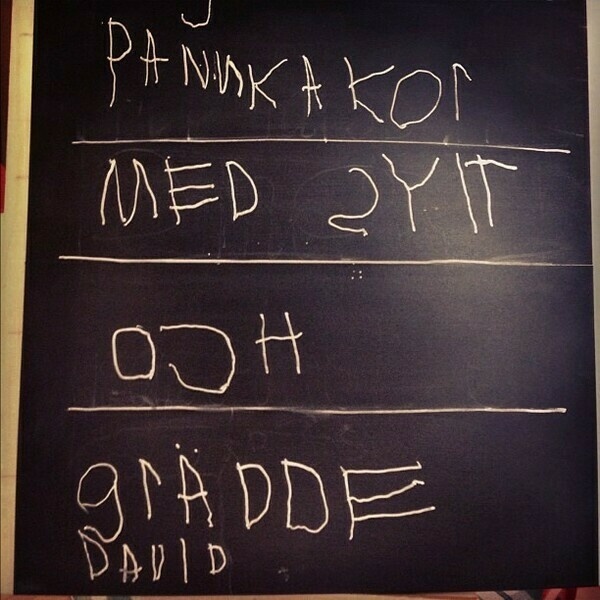 PANNKAKOr
MED SYlT
OCH
grÄDDE
DAVID